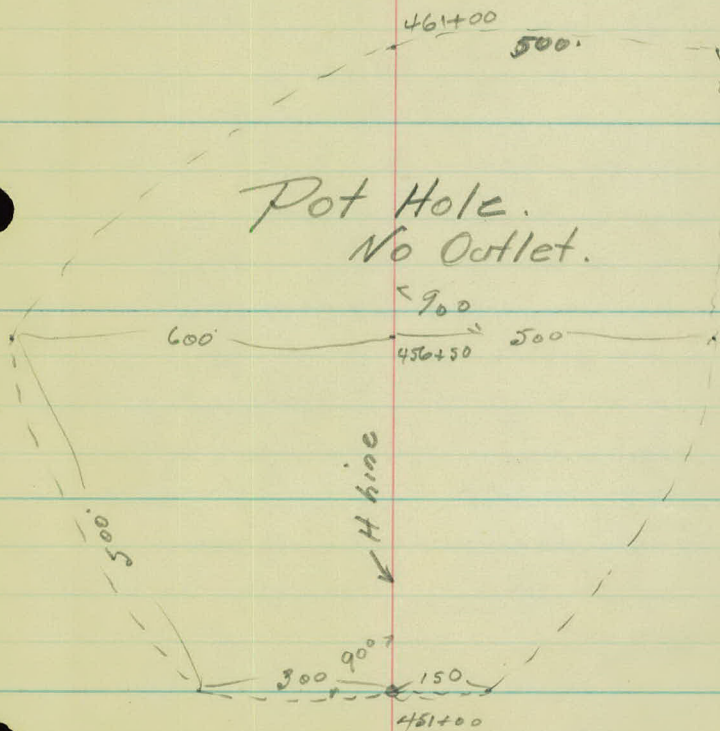 461+00
500.
Pot Hole.
No Outlet.
90°
600 500
456+50
H Line
500
90°
300 150
451+00